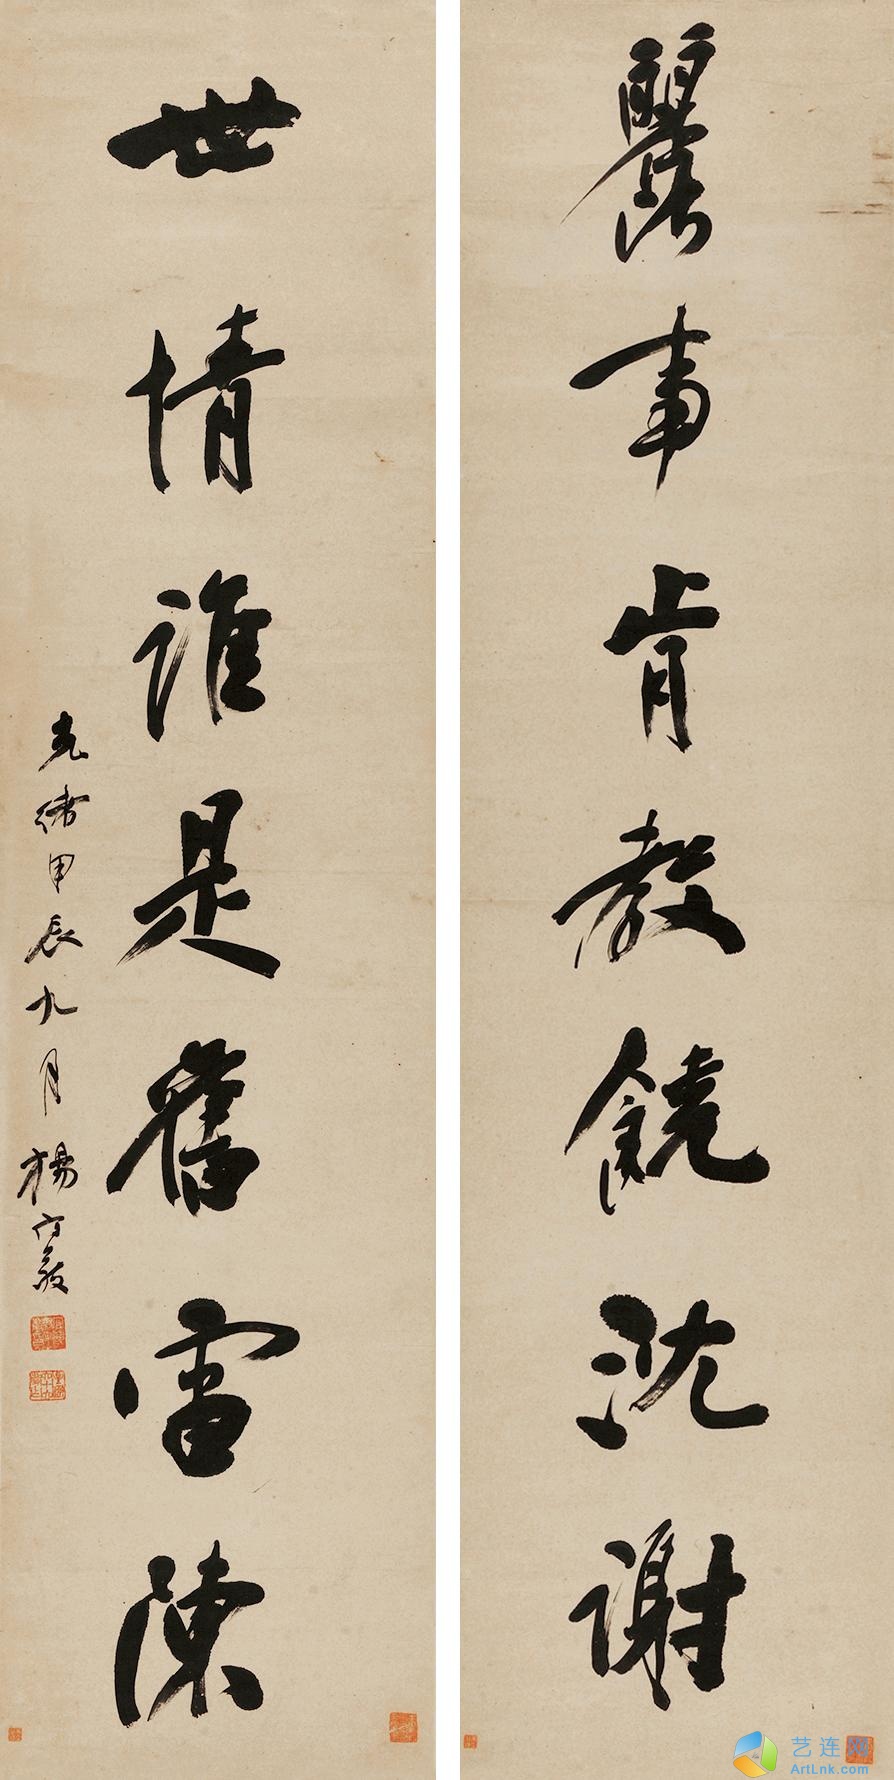 麗事肯教饒沈謝
世情誰是舊雷陳
光緒甲辰九月楊守敬
艺连网
ArtLnk.com